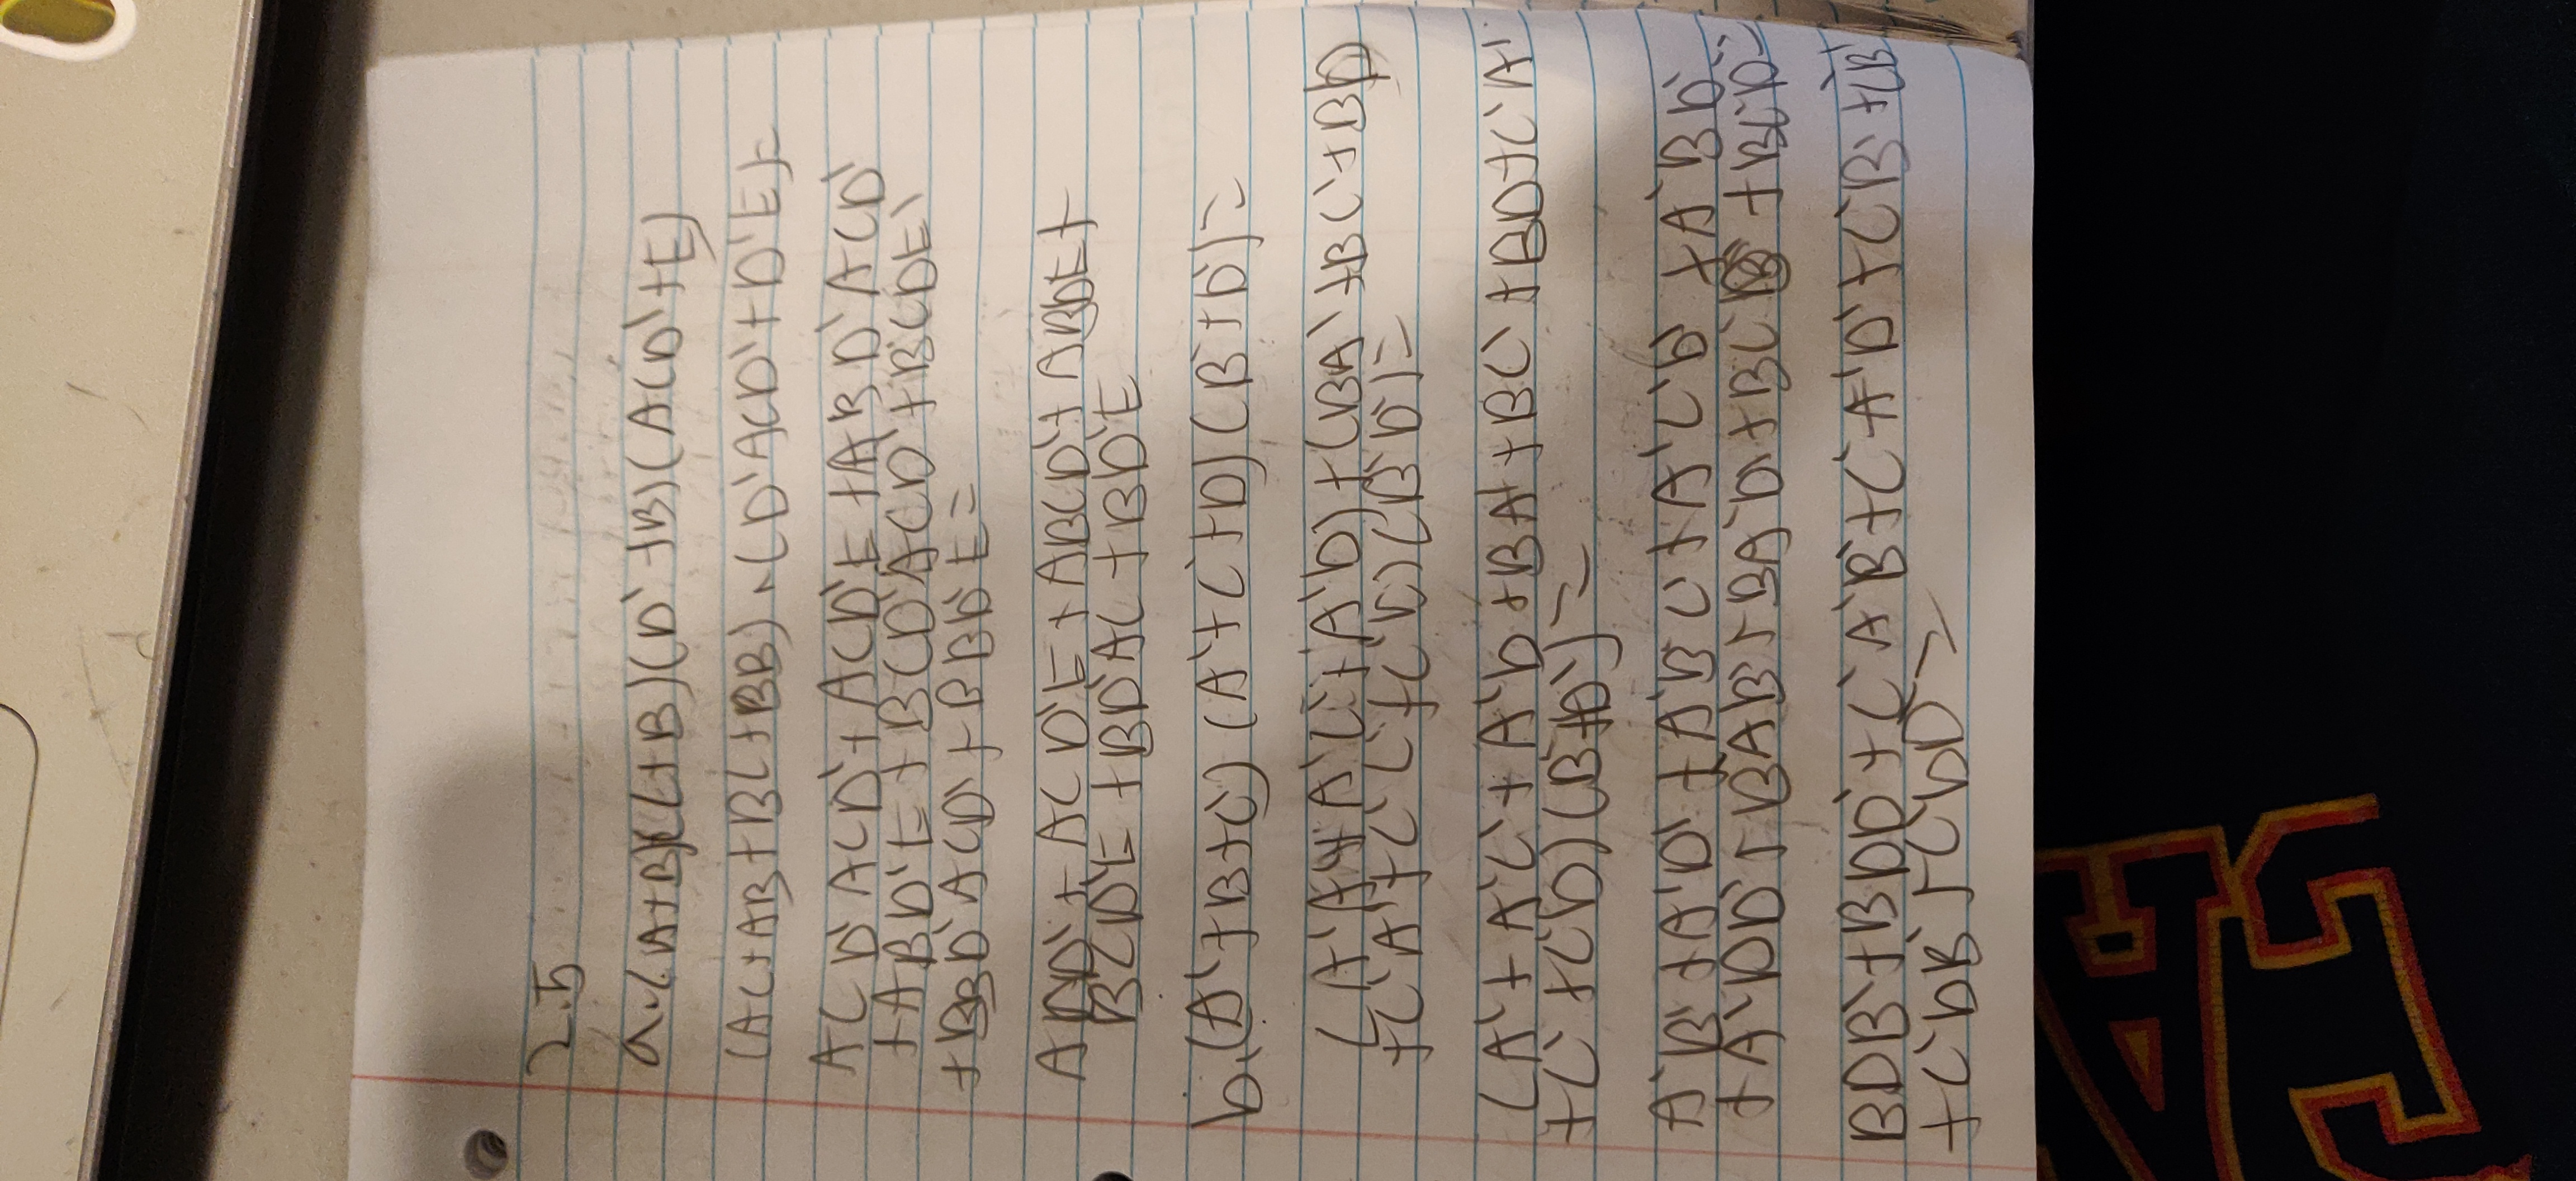 2.5
a. (A+B)(C+B)(D'+B)(ACD'+E)
(AC+AB+BC+BB) · (D'ACD'+D'E)=
ACD'ACD'+ACD'E+ABD'ACD'
+ABD'E+BCD'ACD'+BCDE'
+BBD'ACD'+BBD'E=
ACD'+ACD'E+ABCD'+ABDE+
BCD'E+BD'AC+BD'E
b. (A'+B+C')(A'+C'+D)(B'+D')=
(A'A'+A'C'+A'D)+(BA'+BC'+BD
+C'A'+C'C'+C'D)(B'D')=
(A'+A'C'+A'D+BA'+BC'+BD+C'A'
+C'+C'D)(B'+D')=
A'B'+A'D'+A'B'C'+A'C'D'+A'B'D
+A'DD'+BA'B'+BA'D'+BC'B'+BC'D'=
BDB'+BDD'+C'A'B'+C'A'D'+C'B'+CB'
+C'DB'+C'DD'=